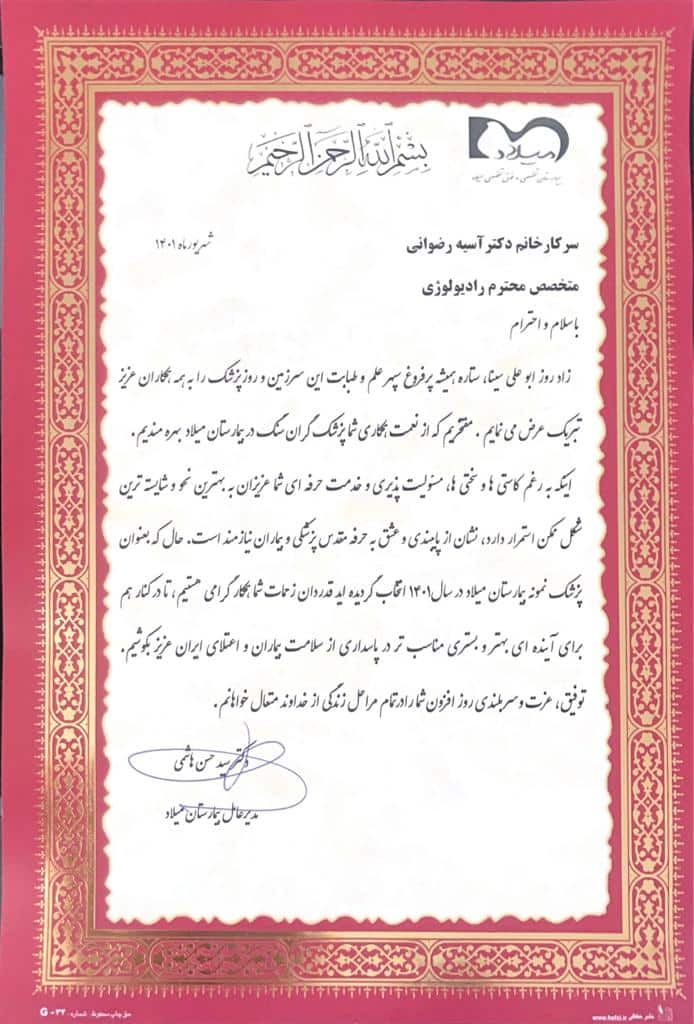 بسم الله الرحمن الرحیم
میلاد
بیمارستان تخصصی و فوق تخصصی میلاد
سرکار خانم دکتر آسیه رضوانی
شهریور ماه ۱۴۰۱
متخصص محترم رادیولوژی
با سلام و احترام
زاد روز ابو علی سینا، ستاره همیشه پر فروغ سپهر علم و طبابت این سرزمین و روز پزشک را به همه همکاران عزیز
تبریک عرض می نمایم . مفتخریم که از نعمت همکاری شما پزشک گران سنگ در بیمارستان میلاد بهره مندیم.
اینکه به رغم کاستی ها و سختی ها، مسئولیت پذیری و خدمت حرفه ای شما عزیزان به بهترین نحو و شایسته ترین
شکل ممکن استمرار دارد، نشان از پایبندی و عشق به حرفه مقدس پزشکی و بیماران نیازمند است. حال که بعنوان
پزشک نمونه بیمارستان میلاد در سال ۱۴۰۱ انتخاب گردیده اید قدردان زحمات شما همکار گرامی هستیم، تا در کنار هم
برای آینده ای بهتر و بستری مناسب تر در پاسداری از سلامت بیماران و اعتلای ایران عزیز بکوشیم.
توفیق، عزت و سربلندی روز افزون شما را در تمام مراحل زندگی از خداوند متعال خواهانم .
دکتر سید حسن هاشمی
مدیر عامل بیمارستان میلاد
G - ۳۲ حق چاپ محفوظ شماره:
www.hafzi.ir